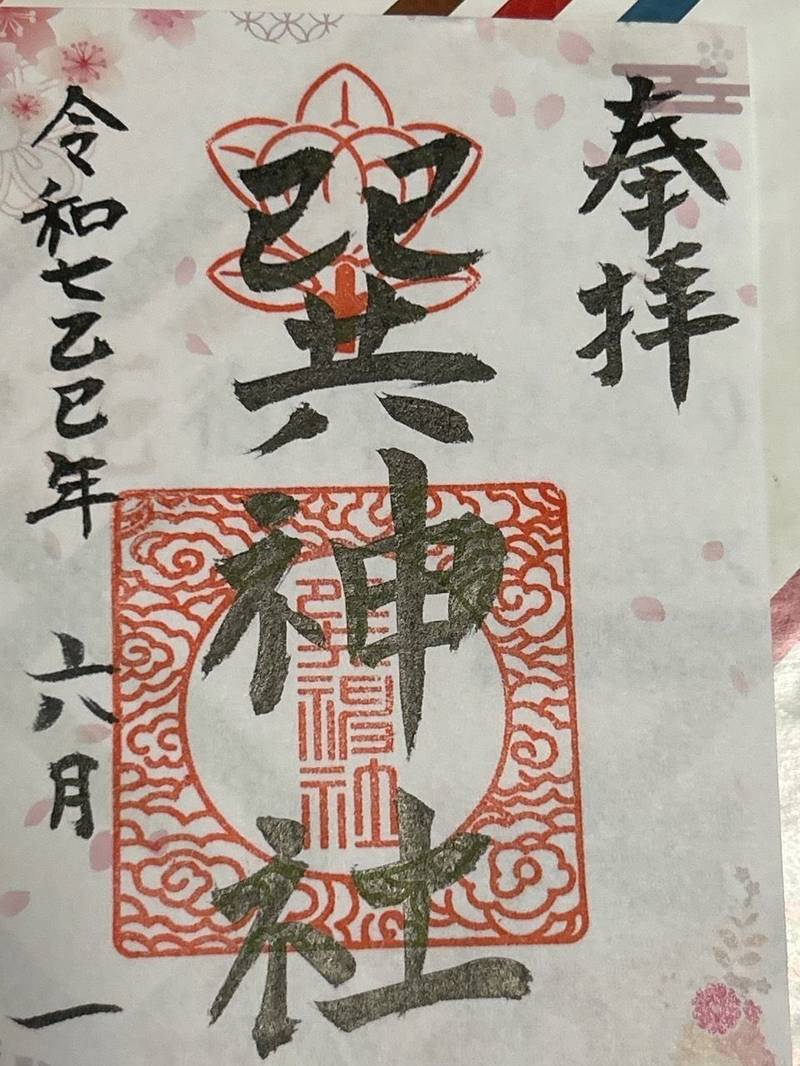 奉拝
巽神社
令和七乙巳年 六月 一